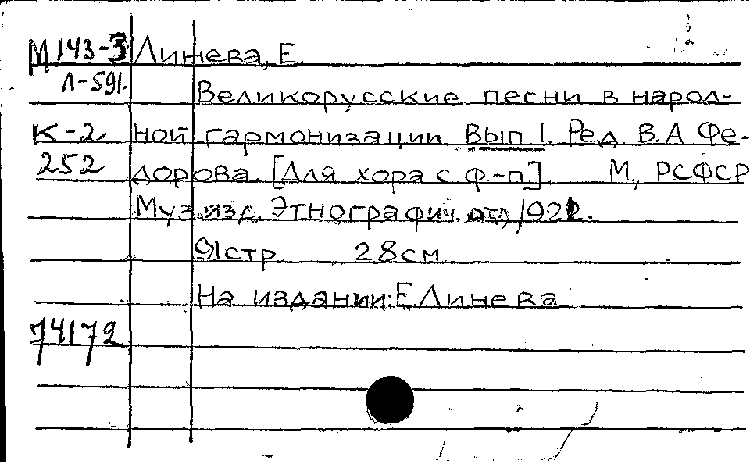 М143-3 Линева, Е.
Л-591. Великорусские песни в народ-
К-2 ной гармонизации. Вып I. Ред. В.А Фе-
252 дорова. [Для хора с ф-п]. М, РСФСР
Муз.изд. Этнографич. отд,
91стр 28см
На издании: Е Линева
74172